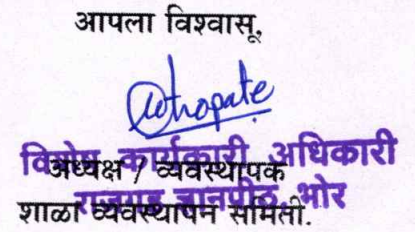 आपला विश्वासू,
विशेष कार्यकारी अधिकारी
अध्यक्ष / व्यवस्थापक
राजगड ज्ञानपीठ, भोर
शाळा व्यवस्थापन समिती.